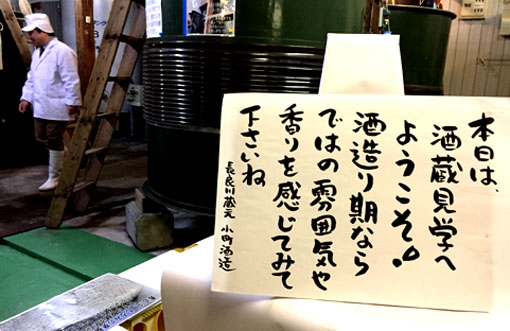 本日は、
酒蔵見学へ
ようこそ!
酒造り期なら
ではの雰囲気や
香りを感じてみて
下さいね
長良川蔵元 小町酒造